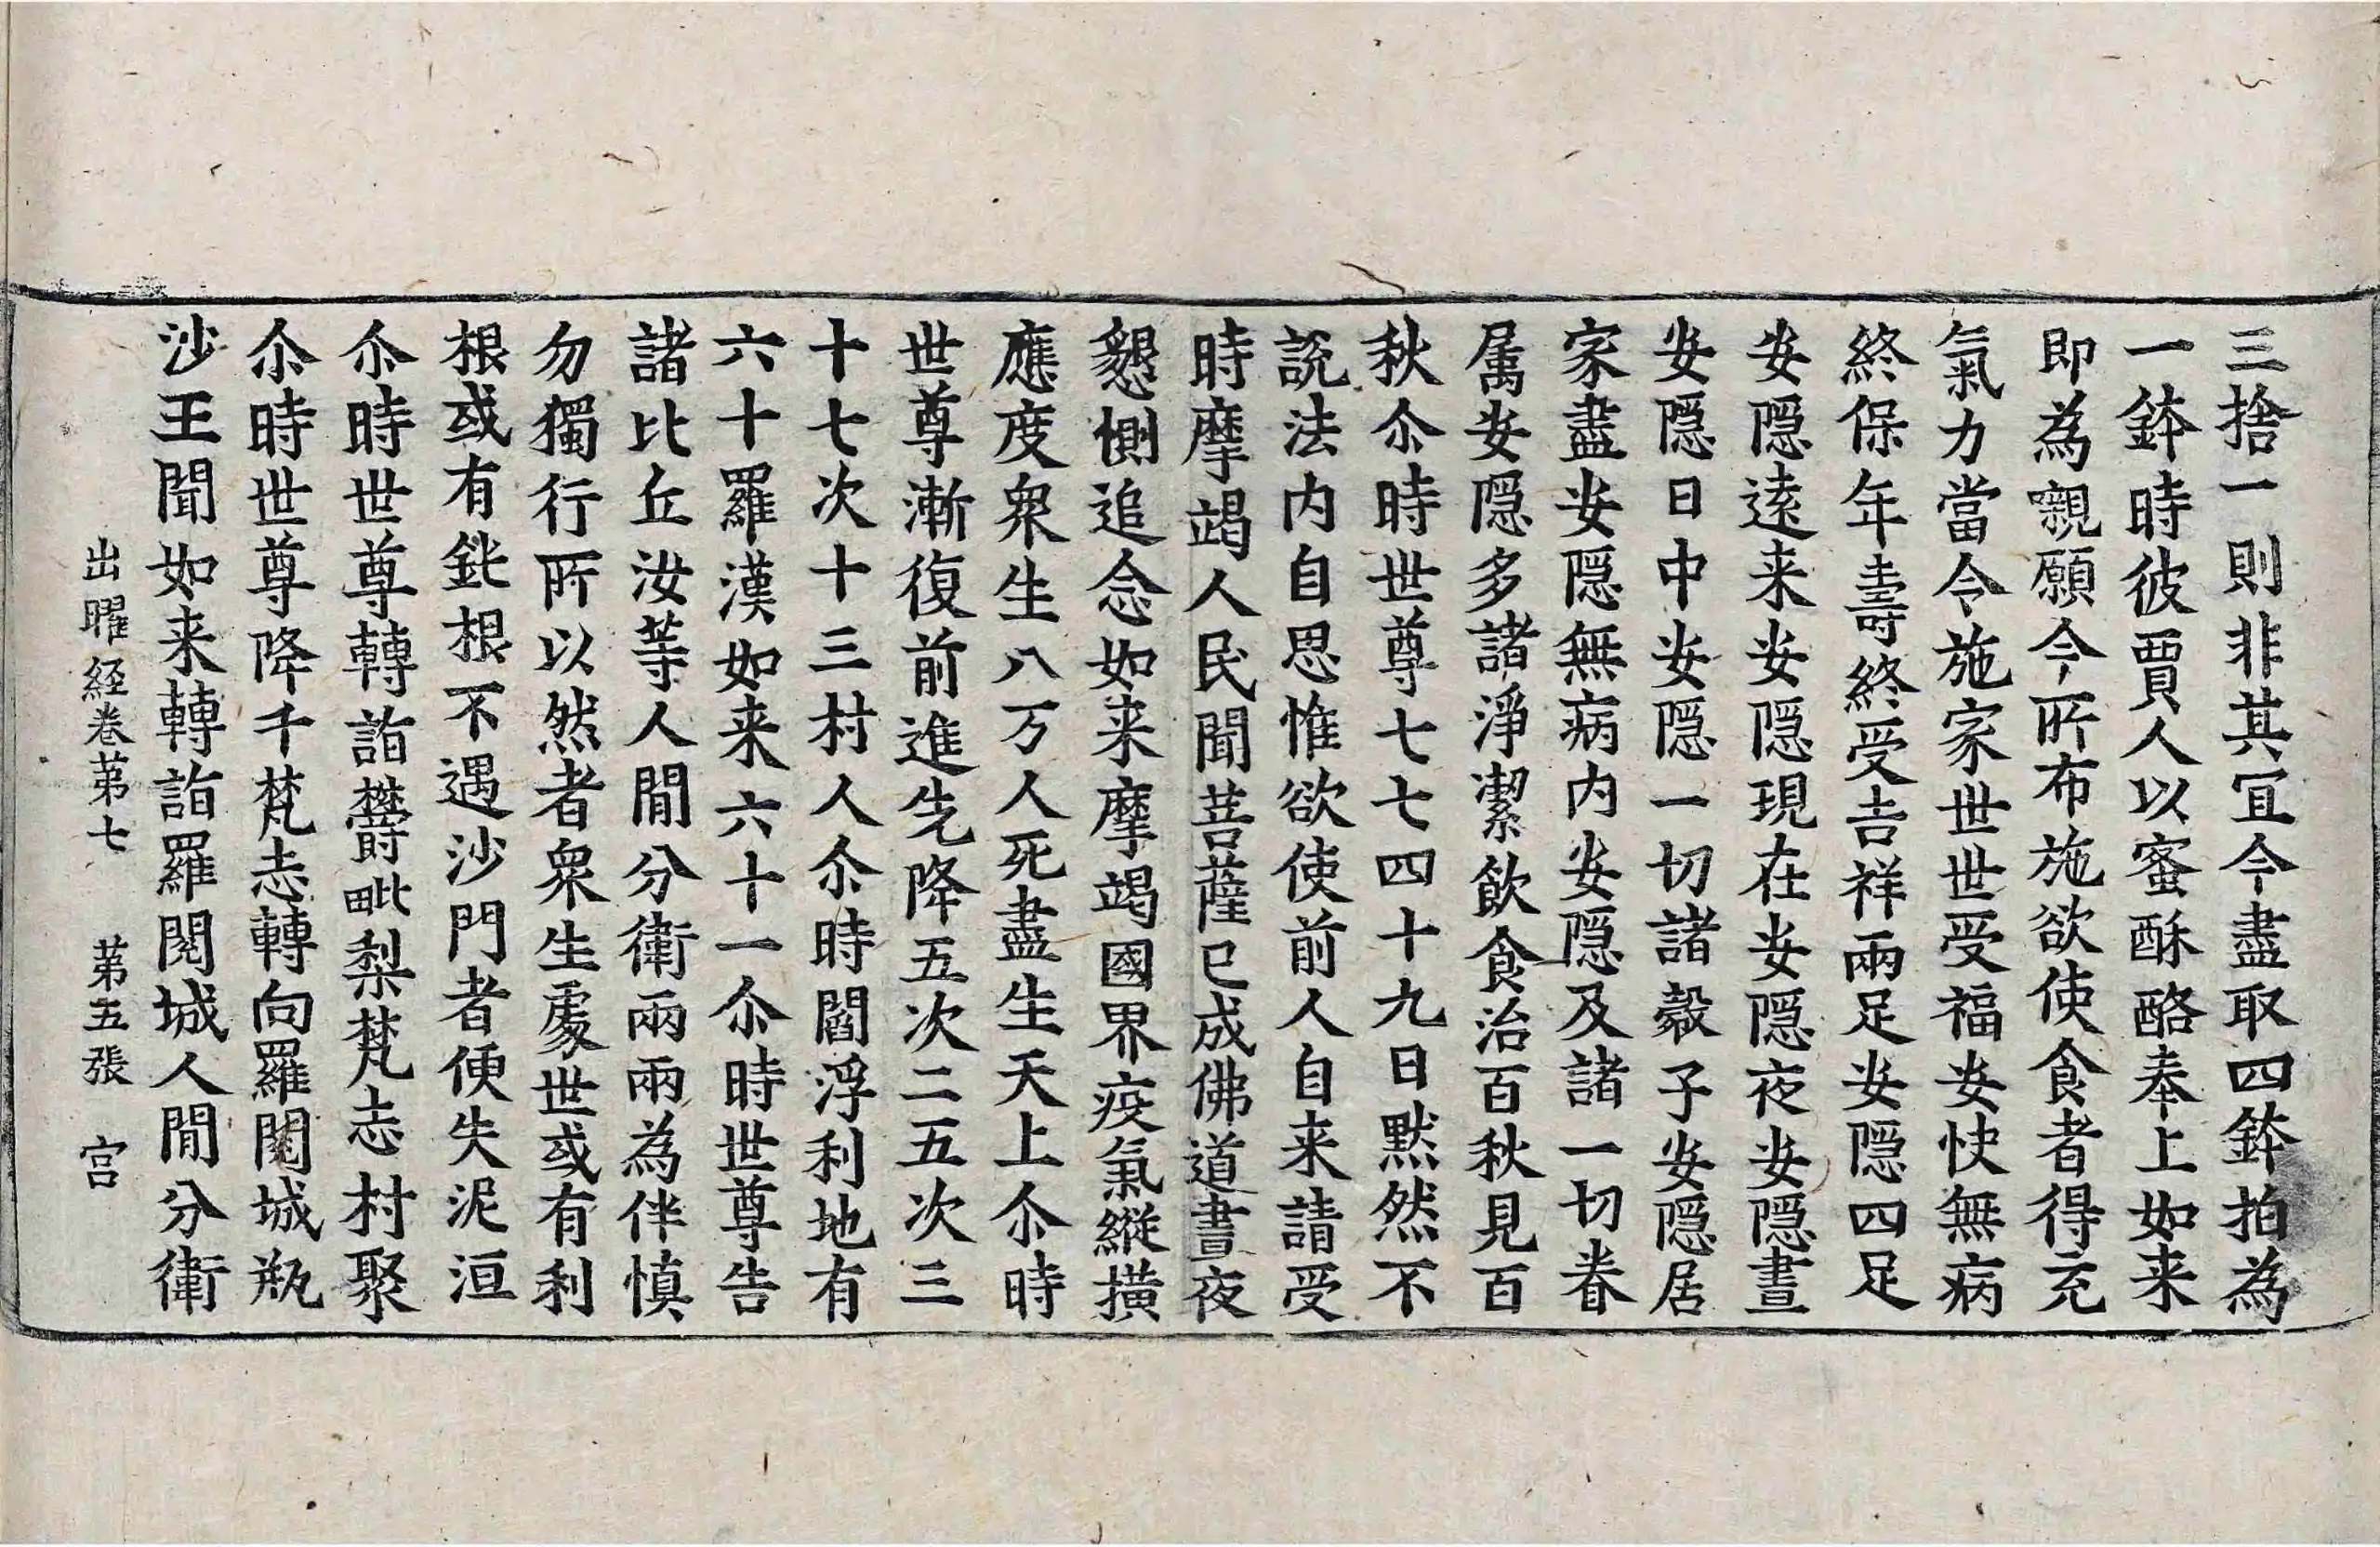 三捨一則非其冝今盡取四鉢拍為
一鉢時彼賈人以蜜酥酪奉上如来
即為䞋願今所布施欲使食者得充
氣力當令施家世世受福安快無病
終保年壽終受吉祥兩足安隠四足
安隠逺来安隠現在安隠夜安隠晝
安隠日中安隠一切諸糓子安隠居
家盡安隠無病内安隠及諸一切眷
属安隠多諸淨潔飲食治百秋見百
秋尒時世尊七七四十九日黙然不
説法内自思惟欲使前人自来請受
時摩竭人民聞菩薩已成佛道晝夜
懇惻追念如来摩竭國界疫氣縱撗
應度衆生八万人死盡生天上尒時
世尊漸復前進先降五次二五次三
十七次十三村人尒時閻浮利地有
六十羅漢如来六十一尒時世尊告
諸比丘汝等人間分衛兩兩為伴慎
勿獨行所以然者衆生處世或有利
根或有鈍根不遇沙門者便失泥洹
尒時世尊轉詣欝毗梨梵志村聚
尒時世尊降千梵志轉向羅閱城瓶
沙王聞如来轉詣羅閱城人間分衛
出曜経卷苐七　苐五張　宫